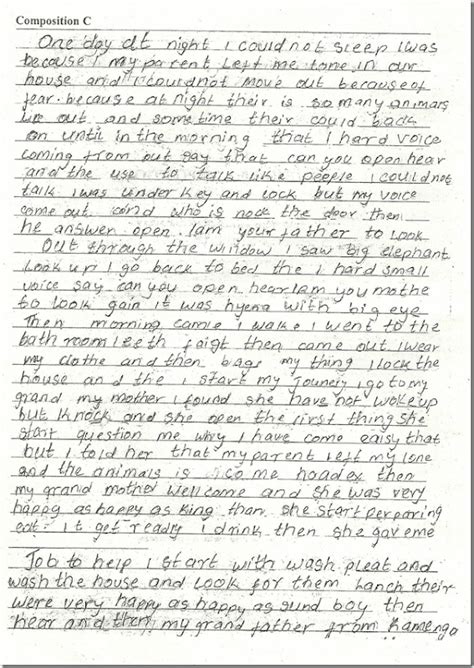 Composition C
One day at night I could not sleep I was
because I my parent left me lone in our
house and I could not move out because of
fear. because at night their is so many animars
up out and sometime their could back
on until in the morning that I hard voice
coming from but say that can you open hear
and the use to talk like people I could not
talk I was under key and lock but my voice
come out and who is nock the door then
he answer open. Iam your father to look
Out through the window I saw big elephant
look up I go back to bed the I hard small
voice say can you open hear Iam you mothe
to look gain it was hyena with big eye
Then morning came I wake I went to the
bath room teeth faigt then came out I wear
my clothe and then bags my thing I lock the
house and the I start my Jouneiy I go to my
grand my mother I found she have not woke up
but knock and she open the first thing she
start question me why I have come eaisy that
but I told her that my parent left my lone
and the animals is come hoadex then
my grand mother wellcome and she was very
happy as happy as king than she start perparing
eat. it get ready I drink then she gave me
Job to help I start with wash pleat and
wash the house and look for them Lanch their
were very happy as happy as sund boy then
hear and then my grand father from Kamenga